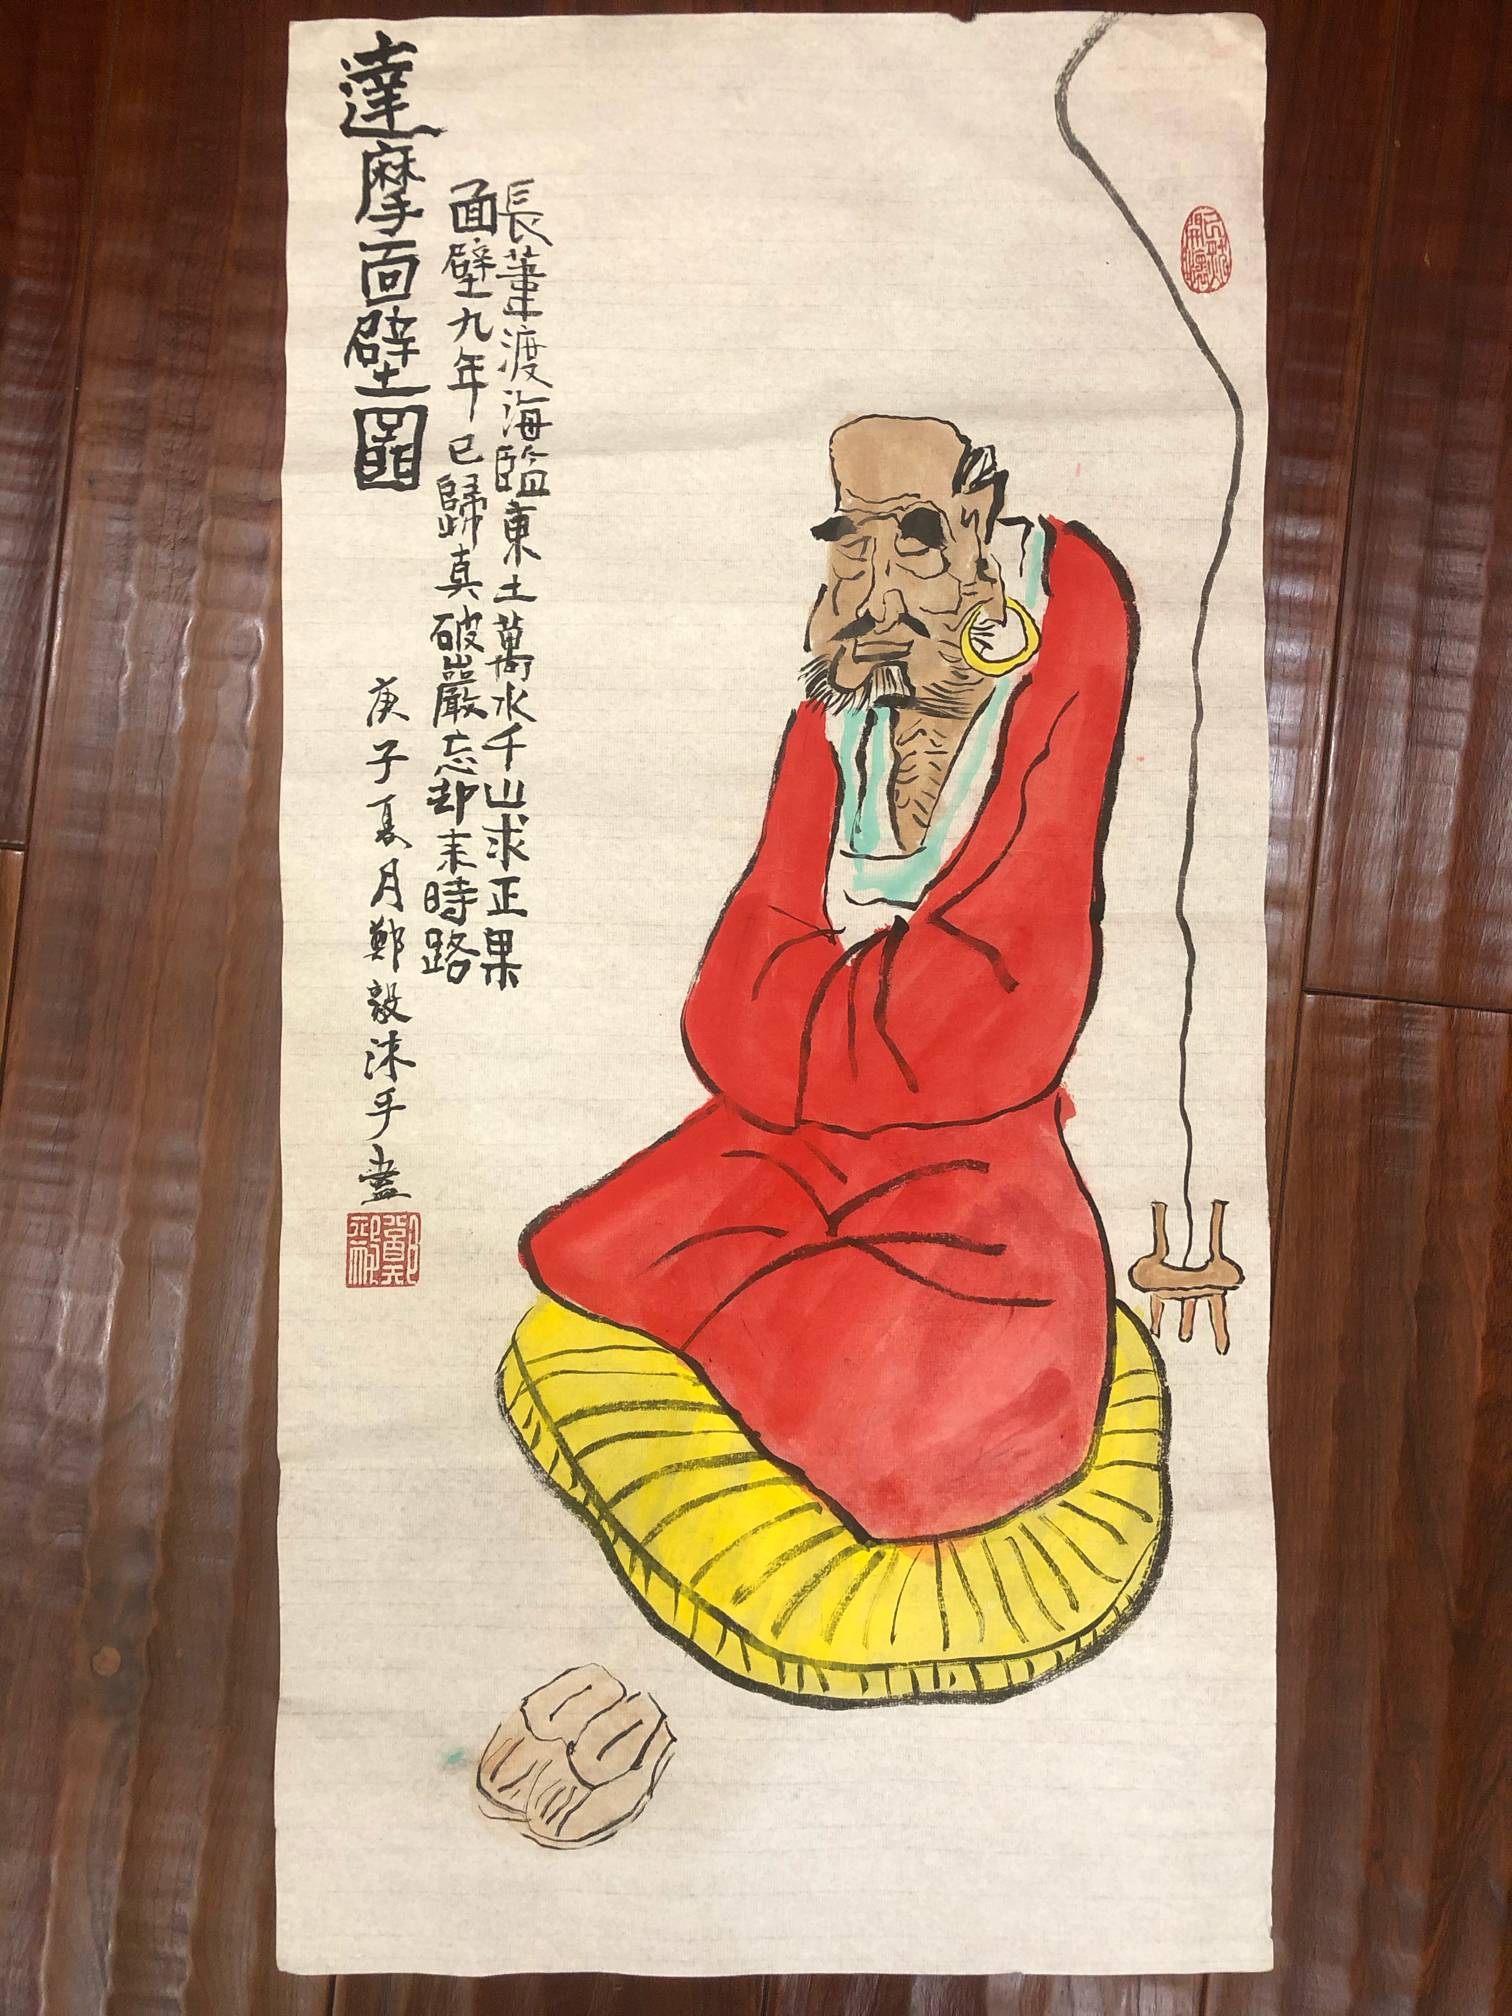 達摩面壁圖
長葦渡海臨東土萬水千山求正果
面壁九年已歸真破巖忘却來時路
庚子夏月鄭毅沐手畫
鄭毅